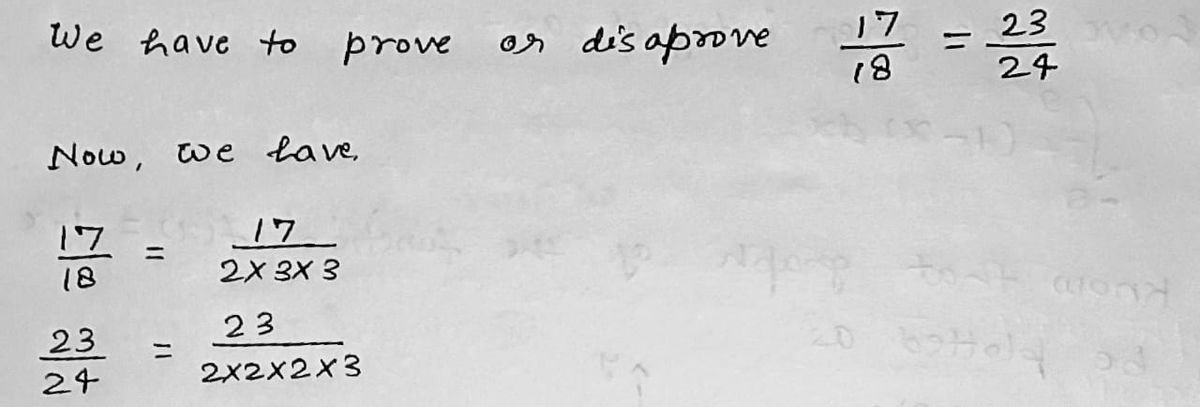 We have to prove or disaprove 17/18 = 23/24
Now, we have,
17/18 = 17/2×3×3
23/24 = 23/2×2×2×3